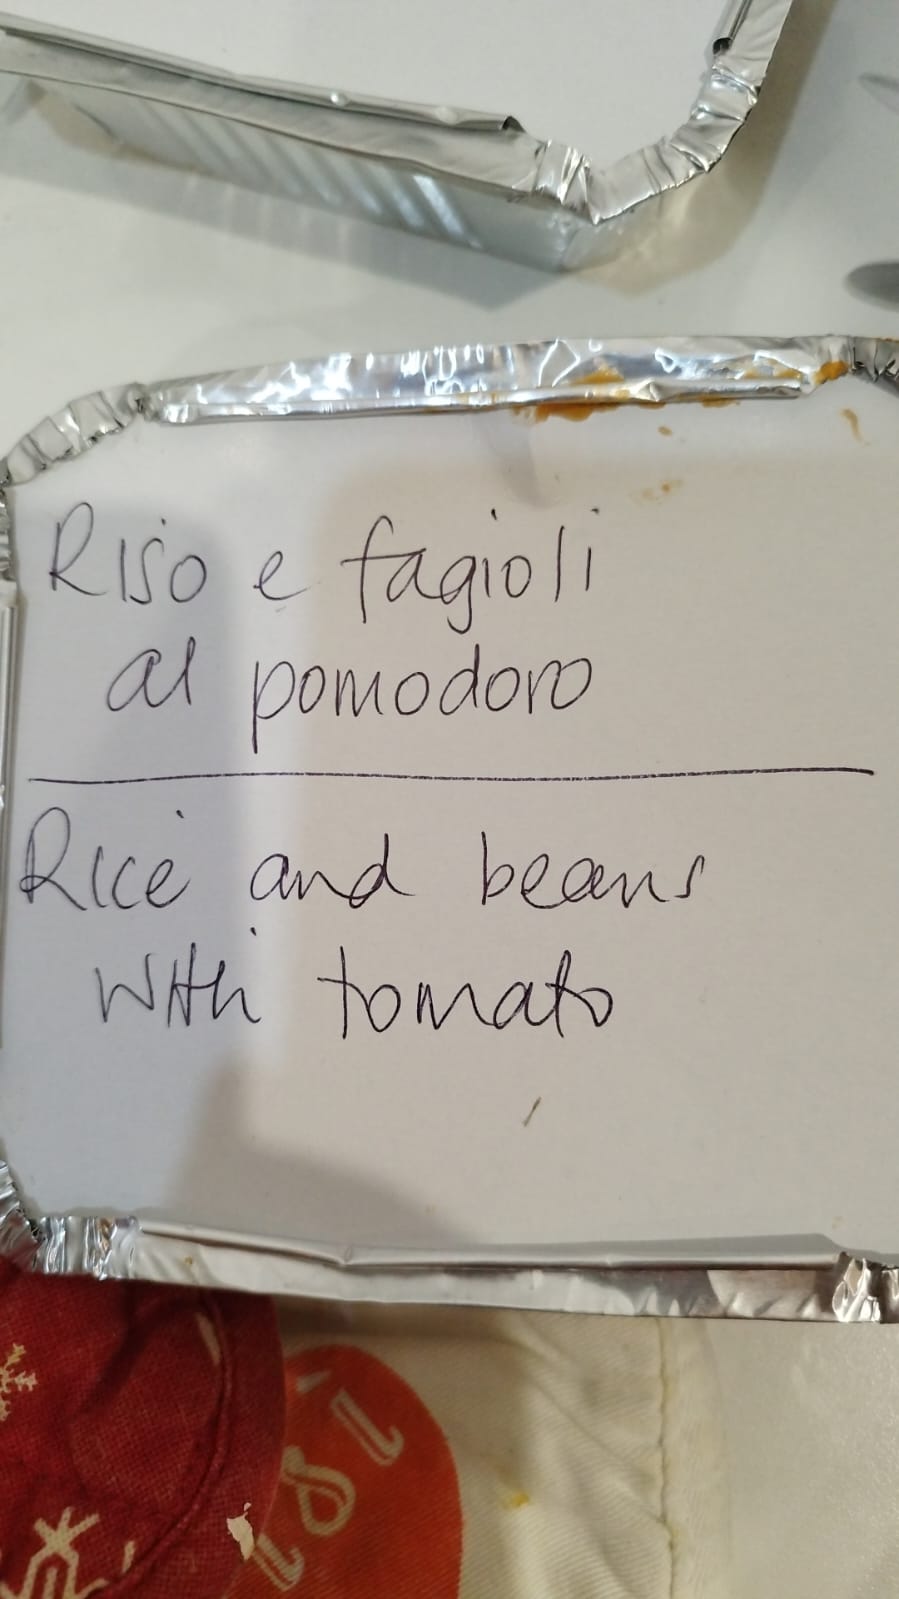 Riso e fagioli
al pomodoro
Rice and beans
with tomato